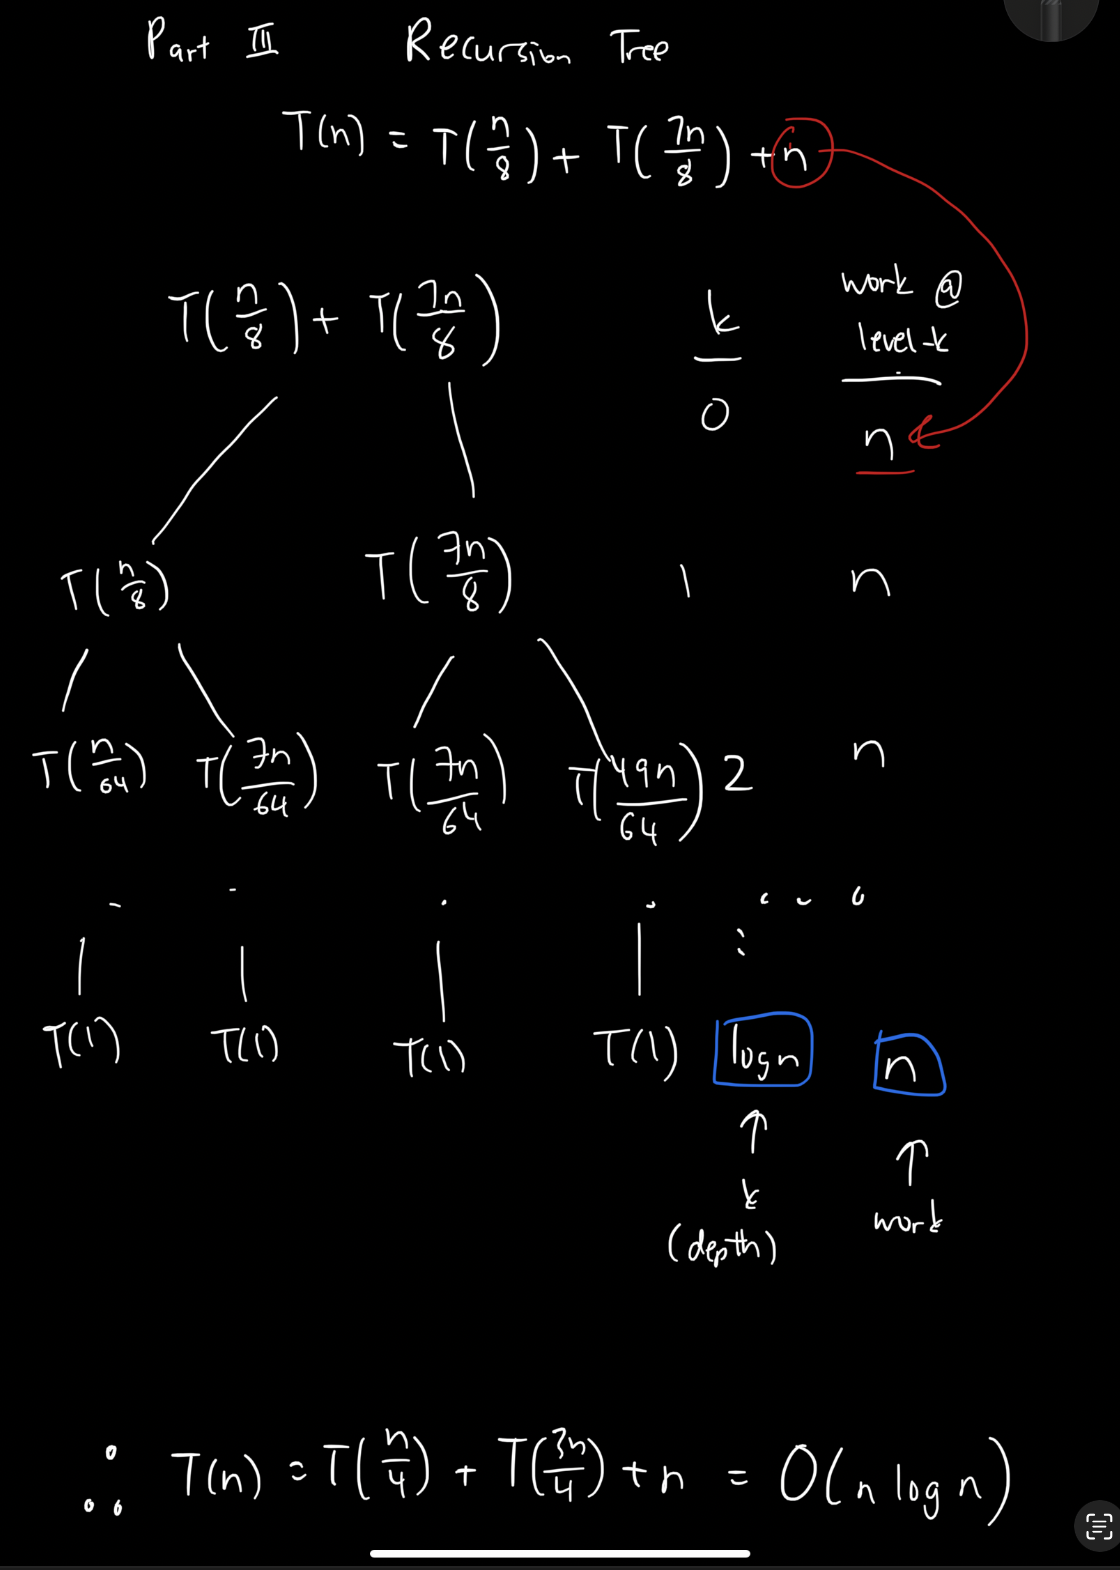 Part III Recursion Tree
T(n) = T(n/8) + T(7n/8) + n
T(n/8) + T(7n/8) k work @ level-k
0 n
T(n/8) T(7n/8) 1 n
T(n/64) T(7n/64) T(7n/64) T(49n/64) 2 n
T(1) T(1) T(1) T(1) logn n
↑ ↑
k work
(depth)
∴ T(n) = T(n/4) + T(3n/4) + n = O(n log n)